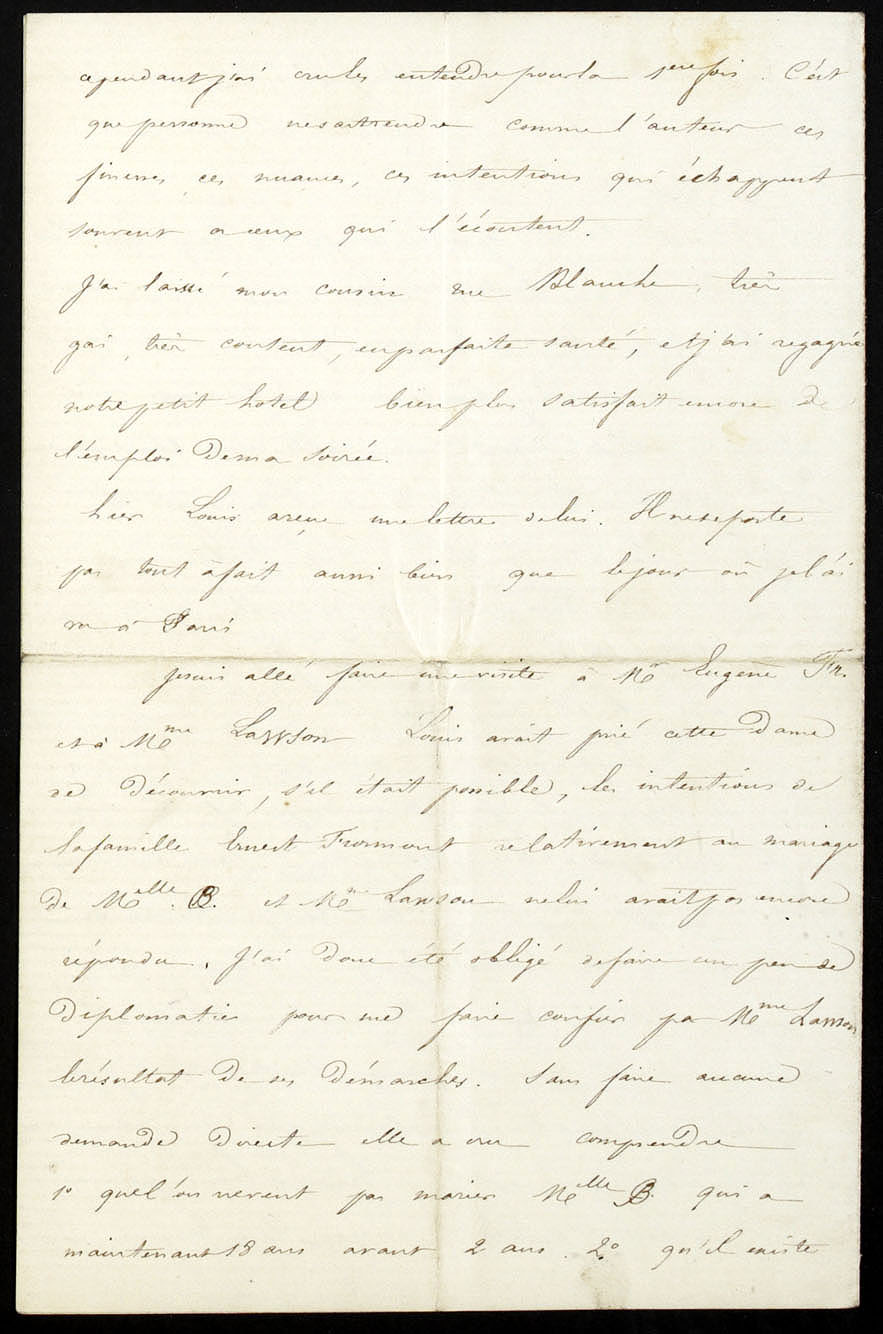 cependant j'ai cru les entendre pour la 1ere fois. C'est
que personne ne sait rendre comme l'auteur ces
finesses, ces nuances, ces intentions qui échappent
souvent a ceux qui l'écoutent.
J'ai laissé mon cousin rue Blanche, très
gai, très content, en parfaite santé, et j'ai regagné
notre petit hotel bien plus satisfait encore de
l'emploi de ma soirée.
hier Louis a reçu une lettre de lui. Il ne se porte
pas tout à fait aussi bien que le jour où je l'ai
vu à Paris
je suis allé faire une visite à Mr Eugène Fr.
et à Mme Lawson Louis avait prié cette dame
de découvrir, s'il était possible, les intentions de
la famille Ernest Fromont relativement au mariage
de Melle. B. et Me Lawson ne lui avait pas encore
répondu. J'ai donc été obligé de faire un peu de
diplomatie pour me faire confier par Mme Lawson
le résultat de ses démarches. Sans faire aucune
demande directe elle a cru comprendre
1º que l'on ne veut pas marier Melle B. qui a
maintenant 18 ans avant 2 ans. 2º qu'il existe